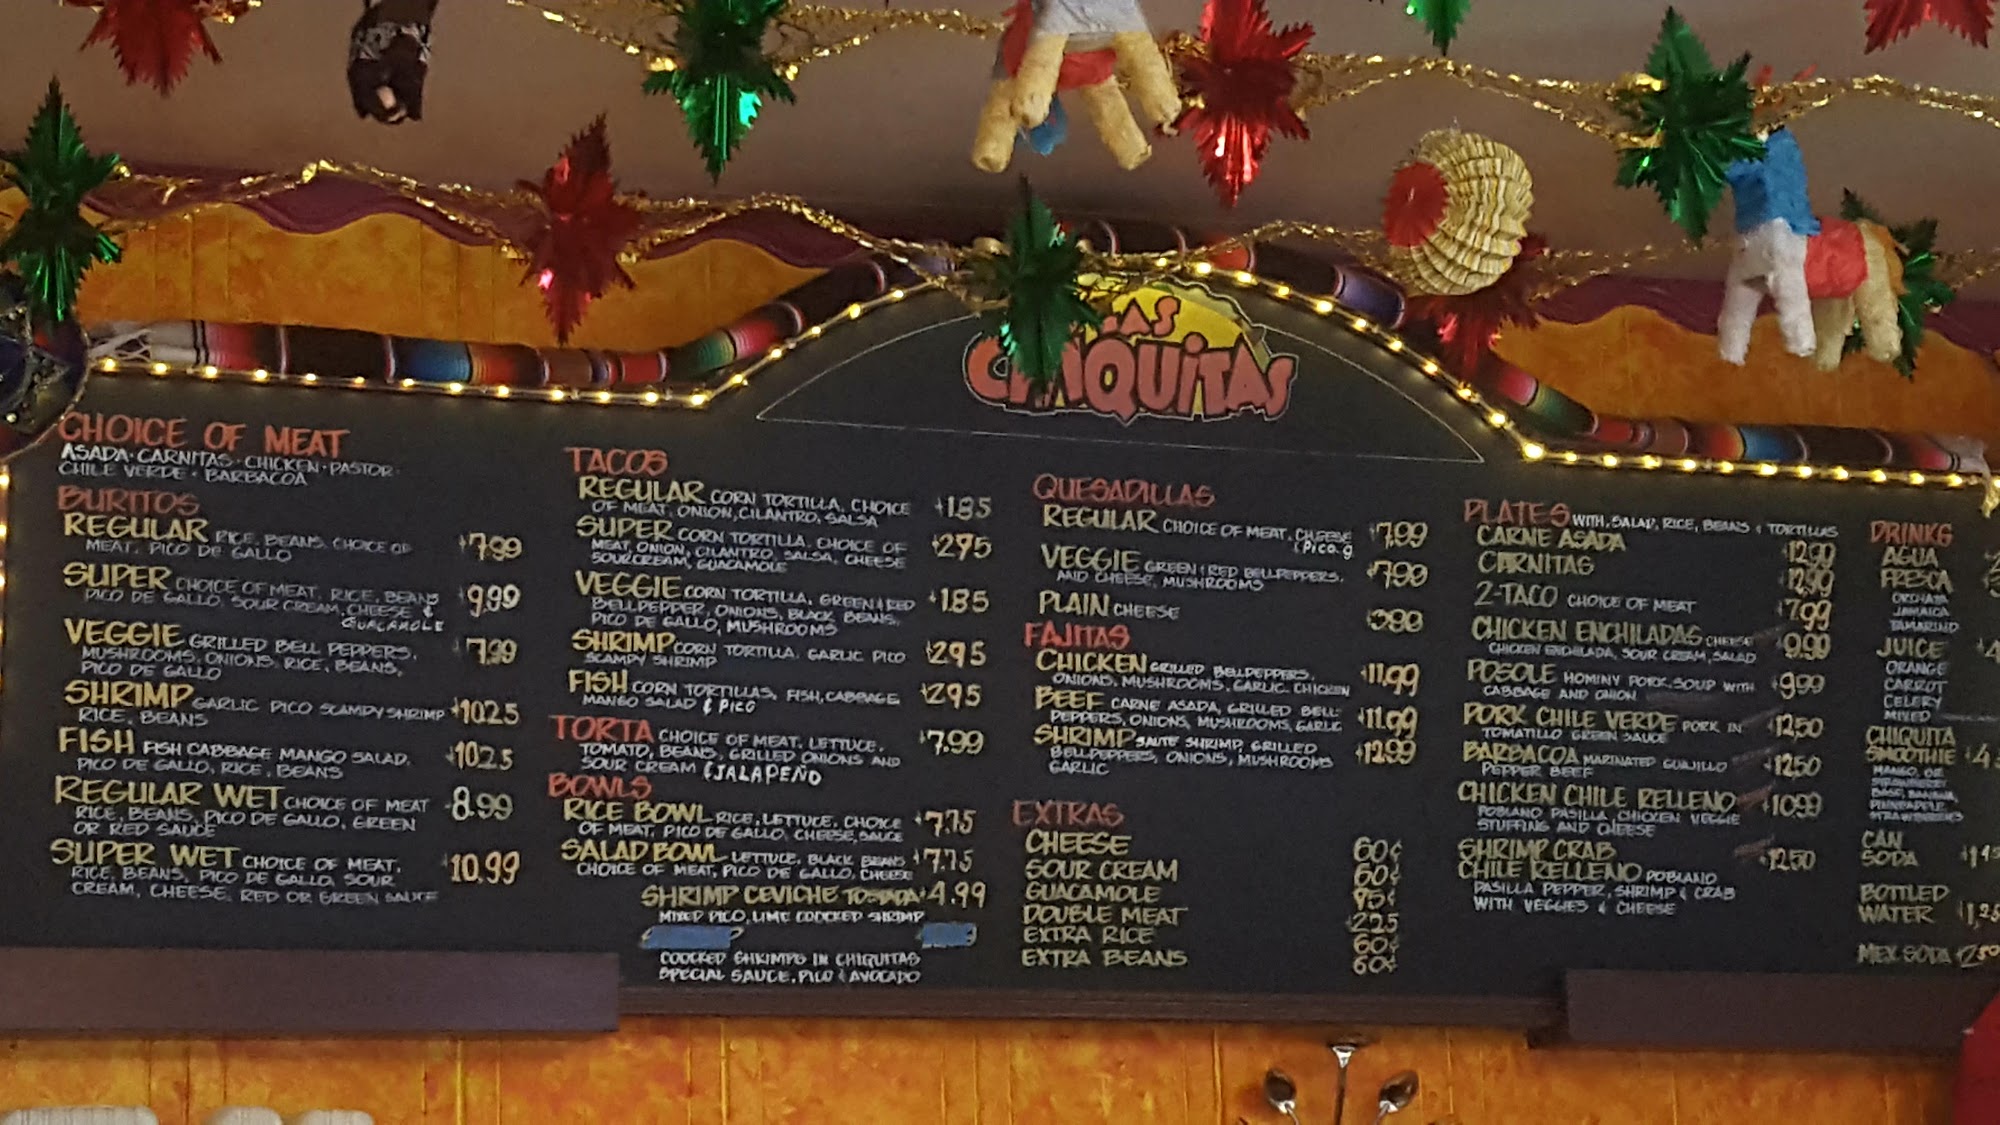 LAS
CHIQUITAS
CHOICE OF MEAT
ASADA · CARNITAS · CHICKEN · PASTOR ·
CHILE VERDE · BARBACOA
BURITOS
REGULAR RICE, BEANS, CHOICE OF $7.99
MEAT, PICO DE GALLO
SUPER CHOICE OF MEAT, RICE, BEANS $9.99
PICO DE GALLO, SOUR CREAM, CHEESE &
GUACAMOLE
VEGGIE GRILLED BELL PEPPERS, 7.99
MUSHROOMS, ONIONS, RICE, BEANS,
PICO DE GALLO
SHRIMP GARLIC PICO SCAMPY SHRIMP $10.25
RICE, BEANS
FISH FISH CABBAGE MANGO SALAD, $10.25
PICO DE GALLO, RICE, BEANS
REGULAR WET CHOICE OF MEAT 8.99
RICE, BEANS, PICO DE GALLO, GREEN
OR RED SAUCE
SUPER WET CHOICE OF MEAT, 10.99
RICE, BEANS, PICO DE GALLO, SOUR
CREAM, CHEESE, RED OR GREEN SAUCE
TACOS
REGULAR CORN TORTILLA, CHOICE $1.85
OF MEAT, ONION, CILANTRO, SALSA
SUPER CORN TORTILLA, CHOICE OF $2.75
MEAT, ONION, CILANTRO, SALSA, CHEESE
SOURCREAM, GUACAMOLE
VEGGIE CORN TORTILLA, GREEN & RED $1.85
BELLPEPPER, ONIONS, BLACK BEANS,
PICO DE GALLO, MUSHROOMS
SHRIMP CORN TORTILLA, GARLIC PICO $2.95
SCAMPY SHRIMP
FISH CORN TORTILLAS, FISH, CABBAGE $2.95
MANGO SALAD & PICO
TORTA CHOICE OF MEAT, LETTUCE, $7.99
TOMATO, BEANS, GRILLED ONIONS AND
SOUR CREAM & JALAPEÑO
BOWLS
RICE BOWL RICE, LETTUCE, CHOICE $7.75
OF MEAT, PICO DE GALLO, CHEESE, SAUCE
SALAD BOWL LETTUCE, BLACK BEANS $7.75
CHOICE OF MEAT, PICO DE GALLO, CHEESE
SHRIMP CEVICHE TOSTADA $4.99
MIXED PICO, LIME COOCKED SHRIMP
COOCKED SHRIMPS IN CHIQUITAS
SPECIAL SAUCE, PICO & AVOCADO
QUESADILLAS
REGULAR CHOICE OF MEAT, CHEESE $7.99
& PICO. g
VEGGIE GREEN & RED BELLPEPPERS, $7.99
AND CHEESE, MUSHROOMS
PLAIN CHEESE
FAJITAS
CHICKEN GRILLED BELLPEPPERS, $11.99
ONIONS, MUSHROOMS, GARLIC, CHICKEN
BEEF CARNE ASADA, GRILLED BELL $11.99
PEPPERS, ONIONS, MUSHROOMS, GARLIC
SHRIMP SAUTE SHRIMP, GRILLED $12.99
BELLPEPPERS, ONIONS, MUSHROOMS
GARLIC
EXTRAS
CHEESE 60¢
SOUR CREAM 60¢
GUACAMOLE 95¢
DOUBLE MEAT $2.25
EXTRA RICE 60¢
EXTRA BEANS 60¢
PLATES WITH, SALAD, RICE, BEANS & TORTILLAS
CARNE ASADA 12.99
CARNITAS 12.99
2-TACO CHOICE OF MEAT $7.99
CHICKEN ENCHILADAS CHEESE $9.99
CHICKEN ENCHILADA, SOUR CREAM, SALAD
POSOLE HOMINY PORK, SOUP WITH $9.99
CABBAGE AND ONION
PORK CHILE VERDE PORK IN $12.50
TOMATILLO GREEN SAUCE
BARBACOA MARINATED GUAJILLO $12.50
PEPPER BEEF
CHICKEN CHILE RELLENO $10.99
POBLANO PASILLA, CHICKEN VEGGIE
STUFFING AND CHEESE
SHRIMP CRAB $12.50
CHILE RELLENO POBLANO
PASILLA PEPPER, SHRIMP & CRAB
WITH VEGGIES & CHEESE
DRINKS
AGUA
FRESCA
ORCHATA
JAMAICA
TAMARIND
JUICE $4
ORANGE
CARROT
CELERY
MIXED
CHIQUITA
SMOOTHIE $4
MANGO, OR
STRAWBERRY
BASE, BANANA,
PINEAPPLE,
STRAWBERRIES
CAN
SODA $1.45
BOTTLED
WATER $1.25
MEX SODA $2.50